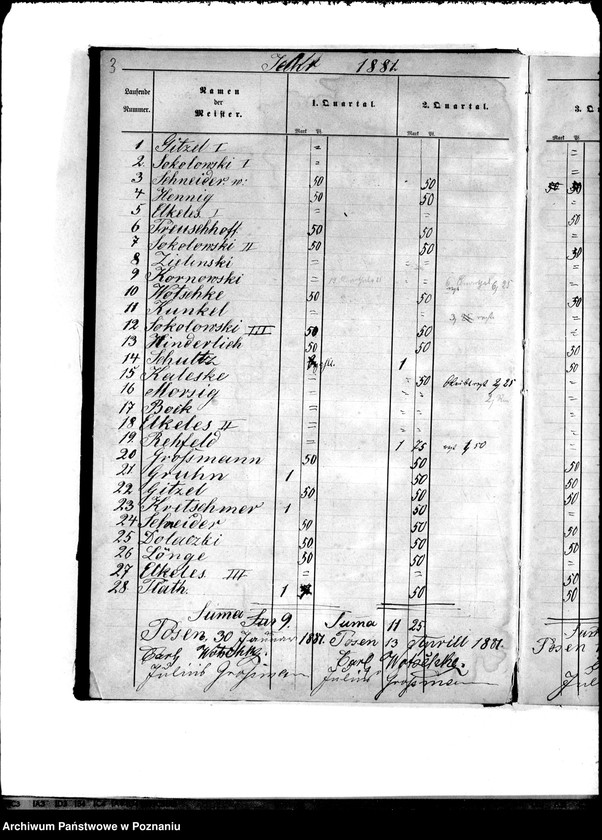 3
1881.
Laufende Nummer.
Namen der Meister.
1. Quartal.
2. Quartal.
3. Qu
Mark Pf.
Mark Pf.
Mark
1 Gitzel I =
2. Sokolowski I =
3 Schneider 50 50
4 Hennig 50 50
5 Elkeles I = = 50
6 Treuschhoff 50 50
7 Sokolowski II 50 50 30
8 Zielinski = =
9 Kornowski =
10 Wotschke 50 50 30
11 Kunkel =
12 Sokolowski III 50 50
13 Hinderlich 50 50 50
14 Schultz 1 50
15 Kaleske = 50 25
16 Morsig =
17 Bock =
18 Elkeles II =
19. Rehfeld = 1 25 50
20 Grossmann 50 50 50
21 Gruhn 1 50 50
22 Gitzel 50 50 50
23 Kretschmer 1 50
24 Schneider 50 50 50
25 Dolaczki 50 50 50
26 Länge 50 50
27 Elkeles III = = 50
28. Rath. 1 50 50
Suma 9. Suma 11 25
Posen, 30 Januar 1881. Posen 13 Aprill 1881.
Carl Wotschke Carl Wotschke.
Julius Grossmann Julius Grossmann
Archiwum Państwowe w Poznaniu